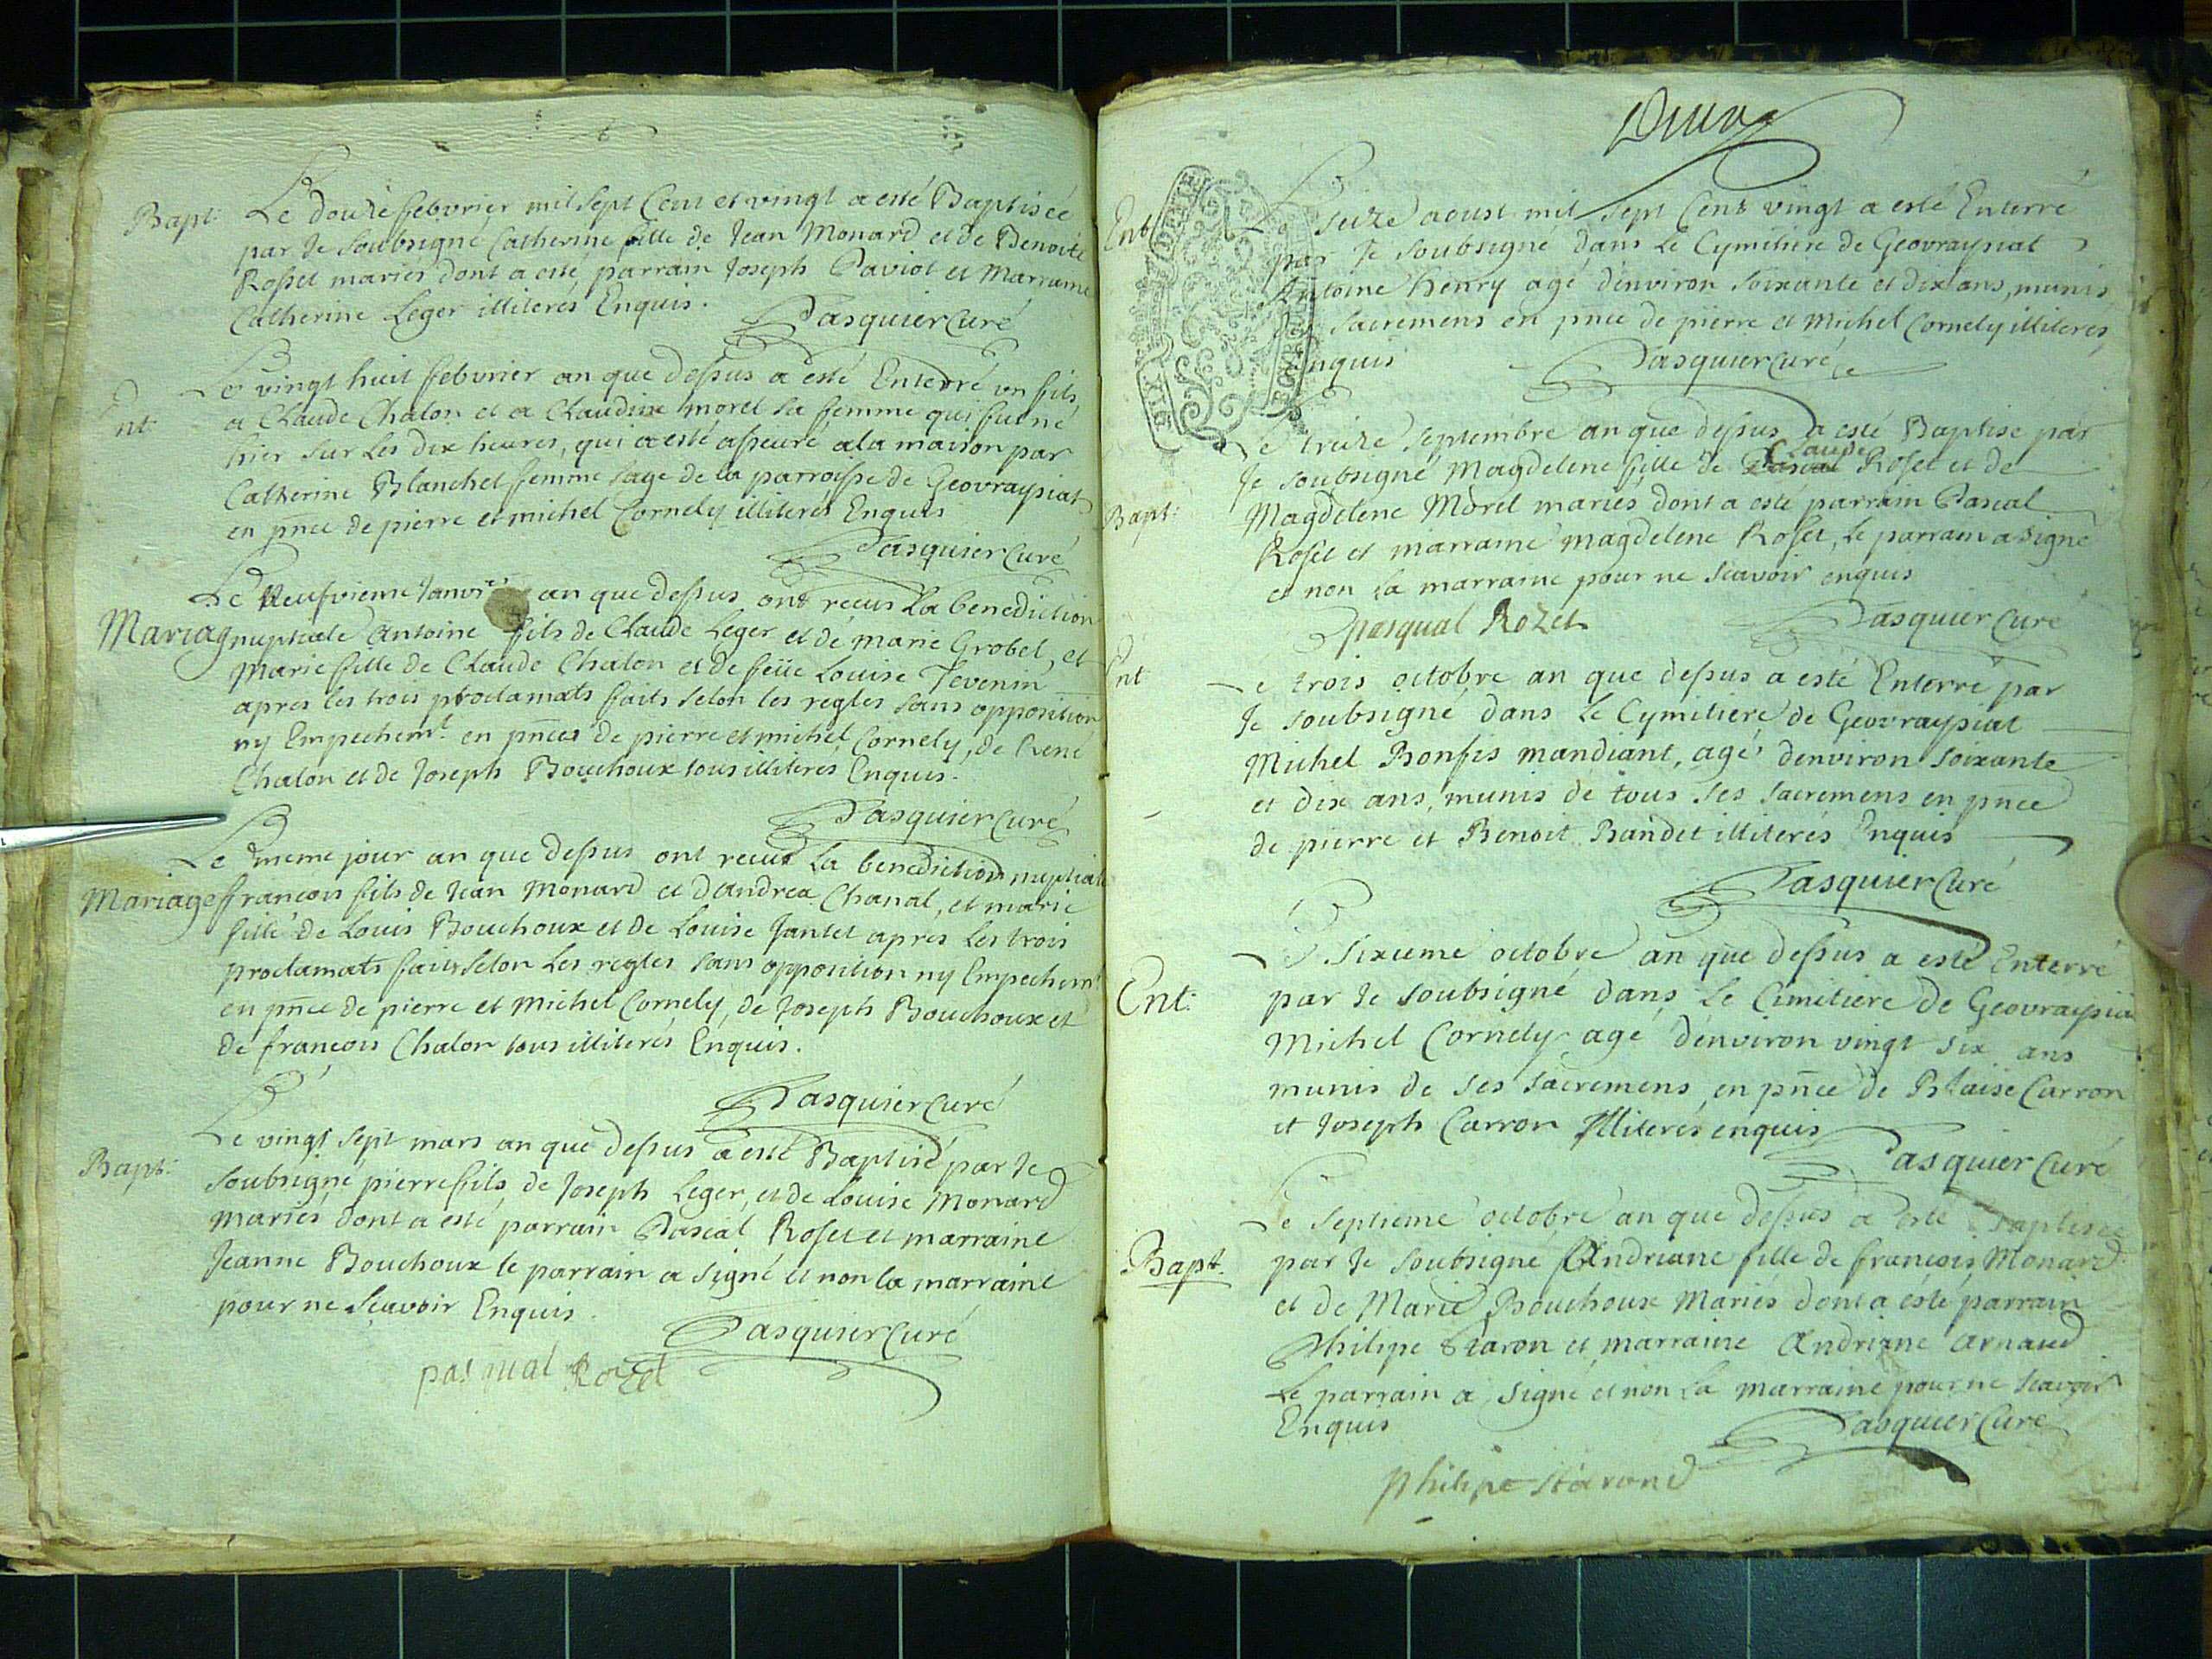 Bapt: Le douze febvrier mil sept Cent et vingt a esté Baptisée
par Je Soubsigné Catherine fille de Jean Monard et de Benoite
Rosset mariés dont a esté parrain Joseph Paviot et Marraine
Catherine Leger illiterés Enquis.
Pasquier Curé
Ent: Le vingt huit febvrier an que dessus a esté Enterré un fils
a Claude Chalon et a Claudine morel sa femme qui fut né
hier sur les dix heures, qui a esté asseuré a la maison par
Catherine Blanchet femme sage de la parroisse de Geovraysiat
en pnce de pierre et michel Cornely illiterés Enquis
Pasquier Curé
Le Neufvieme Janvr an que dessus ont receus la benediction
Mariag nuptiale Antoine fils de Claude Leger et de marie Grobel, et
Marie fille de Claude Chalon et de feüe Louise Tevenin
apres les trois proclamats faits selon les regles sans opposition
ny Empechemt. en pnces de pierre et michel Cornely, de René
Chalon et de Joseph Bouchoux tous illiterés Enquis.
Pasquier Curé
Le meme jour an que dessus ont receus la benediction nuptiale
Mariage francois fils de Jean Monard et d'Andrea Chanal, et marie
fille de Louis Bouchoux et de Louise Jantet apres les trois
proclamats faits selon les regles sans opposition ny Empechemt
en pnce de pierre et Michel Cornely, de Joseph Bouchoux et
de francois Chalon tous illiterés Enquis.
Pasquier Curé
Le vingt sept mars an que dessus a esté Baptisé par Je
Bapt: soubsigné pierre fils de Joseph Leger, et de Louise Monard
Mariés dont a esté parrain Pascal Roset et marraine
Jeanne Bouchoux le parrain a signé et non la marraine
pour ne scavoir Enquis
Pasquier Curé
pasqual Rozet
Ent Le seize aoust mil sept Cent vingt a esté Enterré
par Je soubsigné dans le Cymitiere de Geovraysiat
Antoine henry agé denviron soixante et dix ans, munis
des sacremens en pnce de pierre et Michel Cornely illiterés
Enquis
Pasquier Curé
Le treize septembre an que dessus a esté Baptise par
Claude
Je soubsigné Magdelene fille de Pascal Roset et de
Bapt: Magdelene Morel mariés dont a esté parrain Pascal
Roset et marraine magdelene Roset, le parrain a signé
et non la marraine pour ne scavoir enquis
pasqual Rozet Pasquier Curé
Ent Le trois octobre an que dessus a esté Enterré par
Je soubsigné dans le Cymitiere de Geovraysiat
Michel Bonfis mandiant, agé denviron soixante
et dix ans, munis de tous ses sacremens en pnce
de pierre et Benoit Bandet illiterés Enquis
Pasquier Curé
Le Sixieme octobre an que dessus a esté Enterré
Ent: par Je soubsigné dans le Cimitiere de Geovraysia
Michel Cornely agé denviron vingt six ans
munis de ses sacremens, en pnce de Blaise Carron
et Joseph Carron Illiterés enquis
Pasquier Curé
Le septieme octobre an que dessus a esté Baptisée
Bapt. par Je soubsigné Andriane fille de francois Monard
et de Marie Bouchoux Mariés dont a esté parrain
Philipe Staron et marraine Andriane Arnaud
Le parrain a signé et non la marraine pour ne scavoir
Enquis
Pasquier Curé
philipe starond